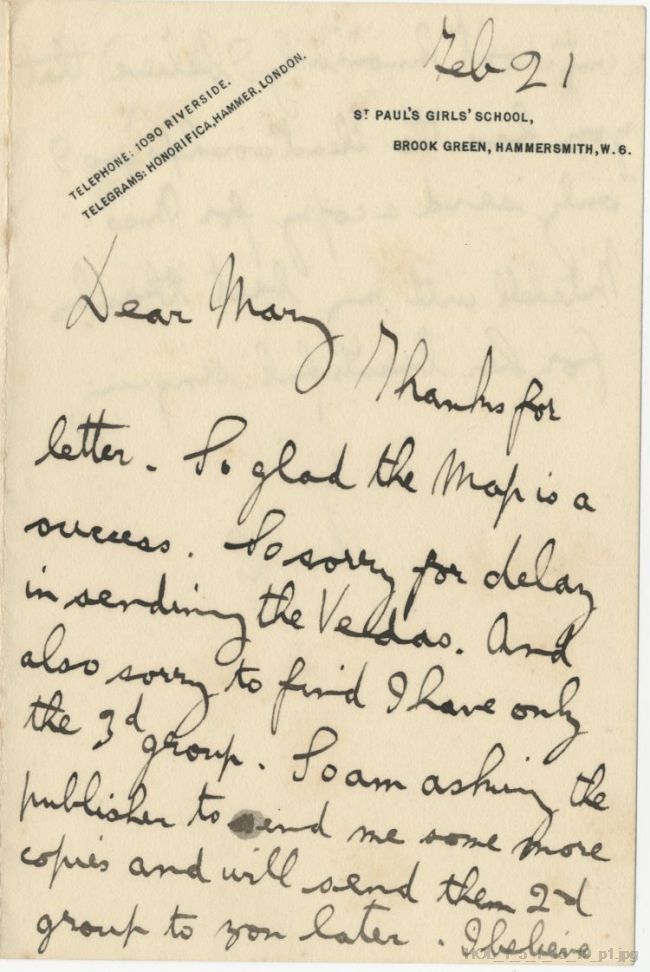 Feb 21
TELEPHONE: 1090 RIVERSIDE.
TELEGRAMS: HONORIFICA, HAMMER, LONDON.
ST PAUL'S GIRLS' SCHOOL,
BROOK GREEN, HAMMERSMITH, W. 6.
Dear Mary
Thanks for
letter. So glad the Map is a
success. So sorry for delay
in sending the Vedas. And
also sorry to find I have only
the 3rd group. So am asking the
publisher to send me some more
copies and will send them 2nd
group to you later. I believe